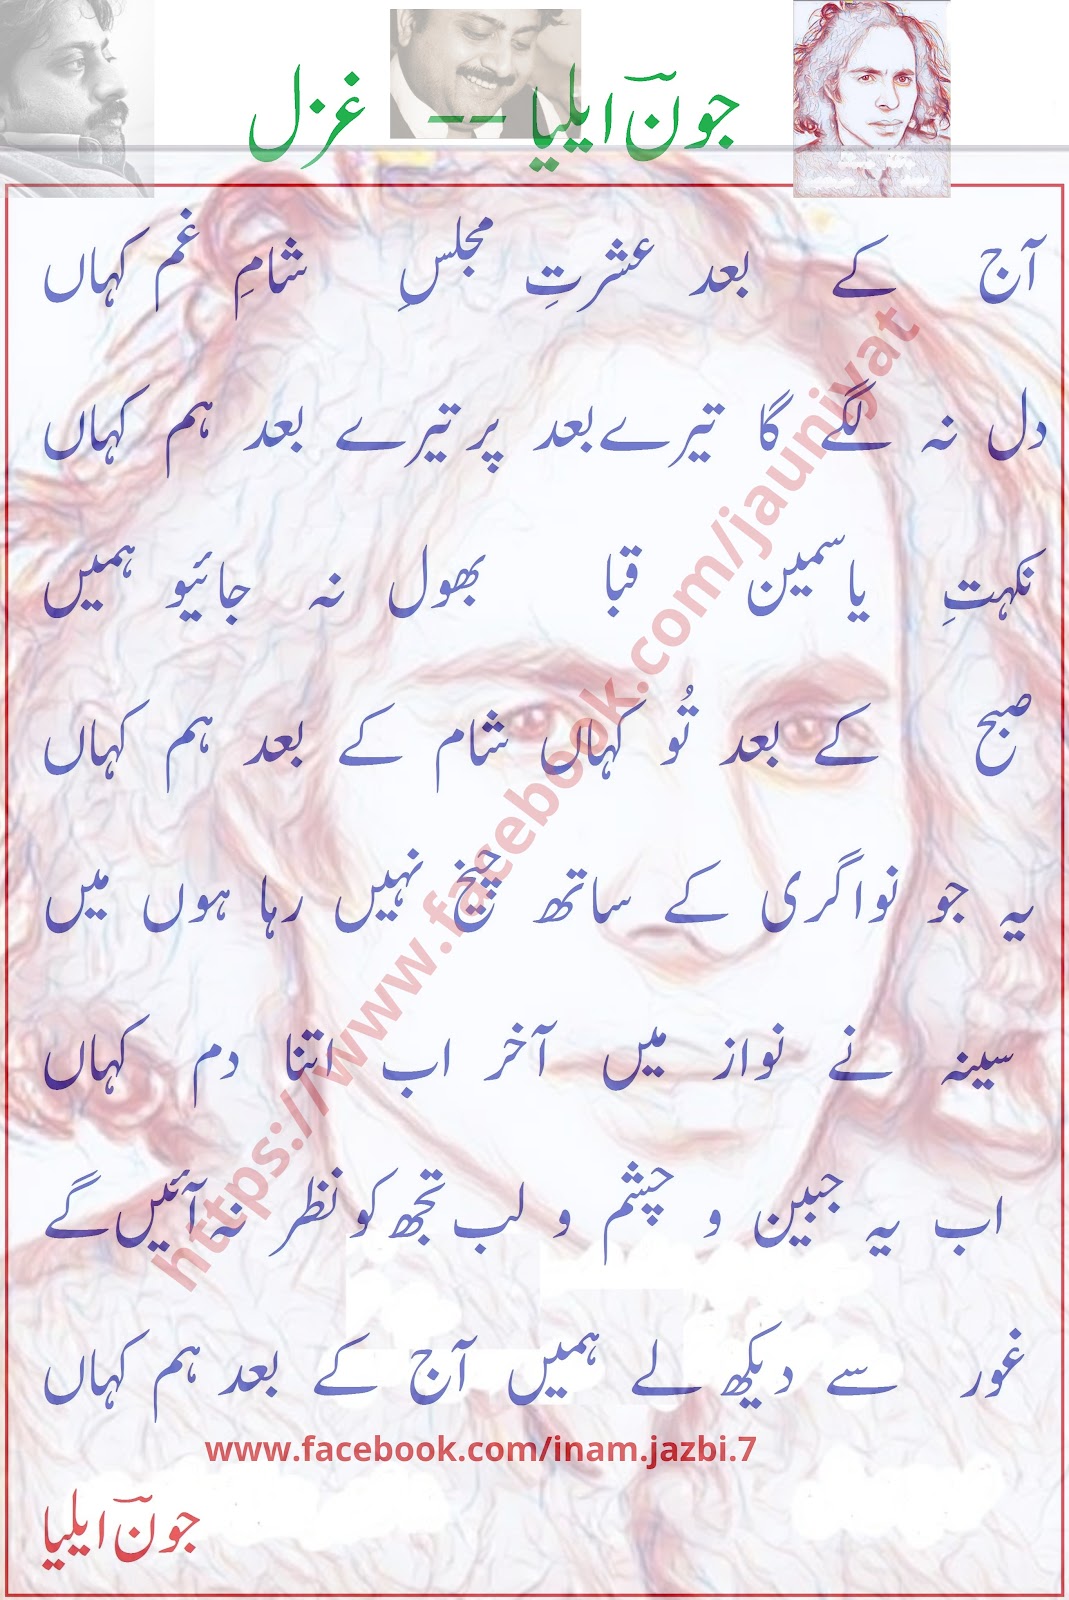 جونؔ ایلیا -- غزل
آج کے بعد عشرتِ مجلسِ شامِ غم کہاں
دل نہ لگے گا تیرے بعد پر تیرے بعد ہم کہاں
نکہتِ یاسمین قبا بھول نہ جائیو ہمیں
صبح کے بعد تُو کہاں شام کے بعد ہم کہاں
یہ جو نواگری کے ساتھ چیخ نہیں رہا ہوں میں
سینہ نے نواز میں آخر اب اتنا دم کہاں
اب یہ جبین و چشم و لب تجھ کو نظر نہ آئیں گے
غور سے دیکھ لے ہمیں آج کے بعد ہم کہاں
https://www.facebook.com/jauniyat
www.facebook.com/inam.jazbi.7
جونؔ ایلیا